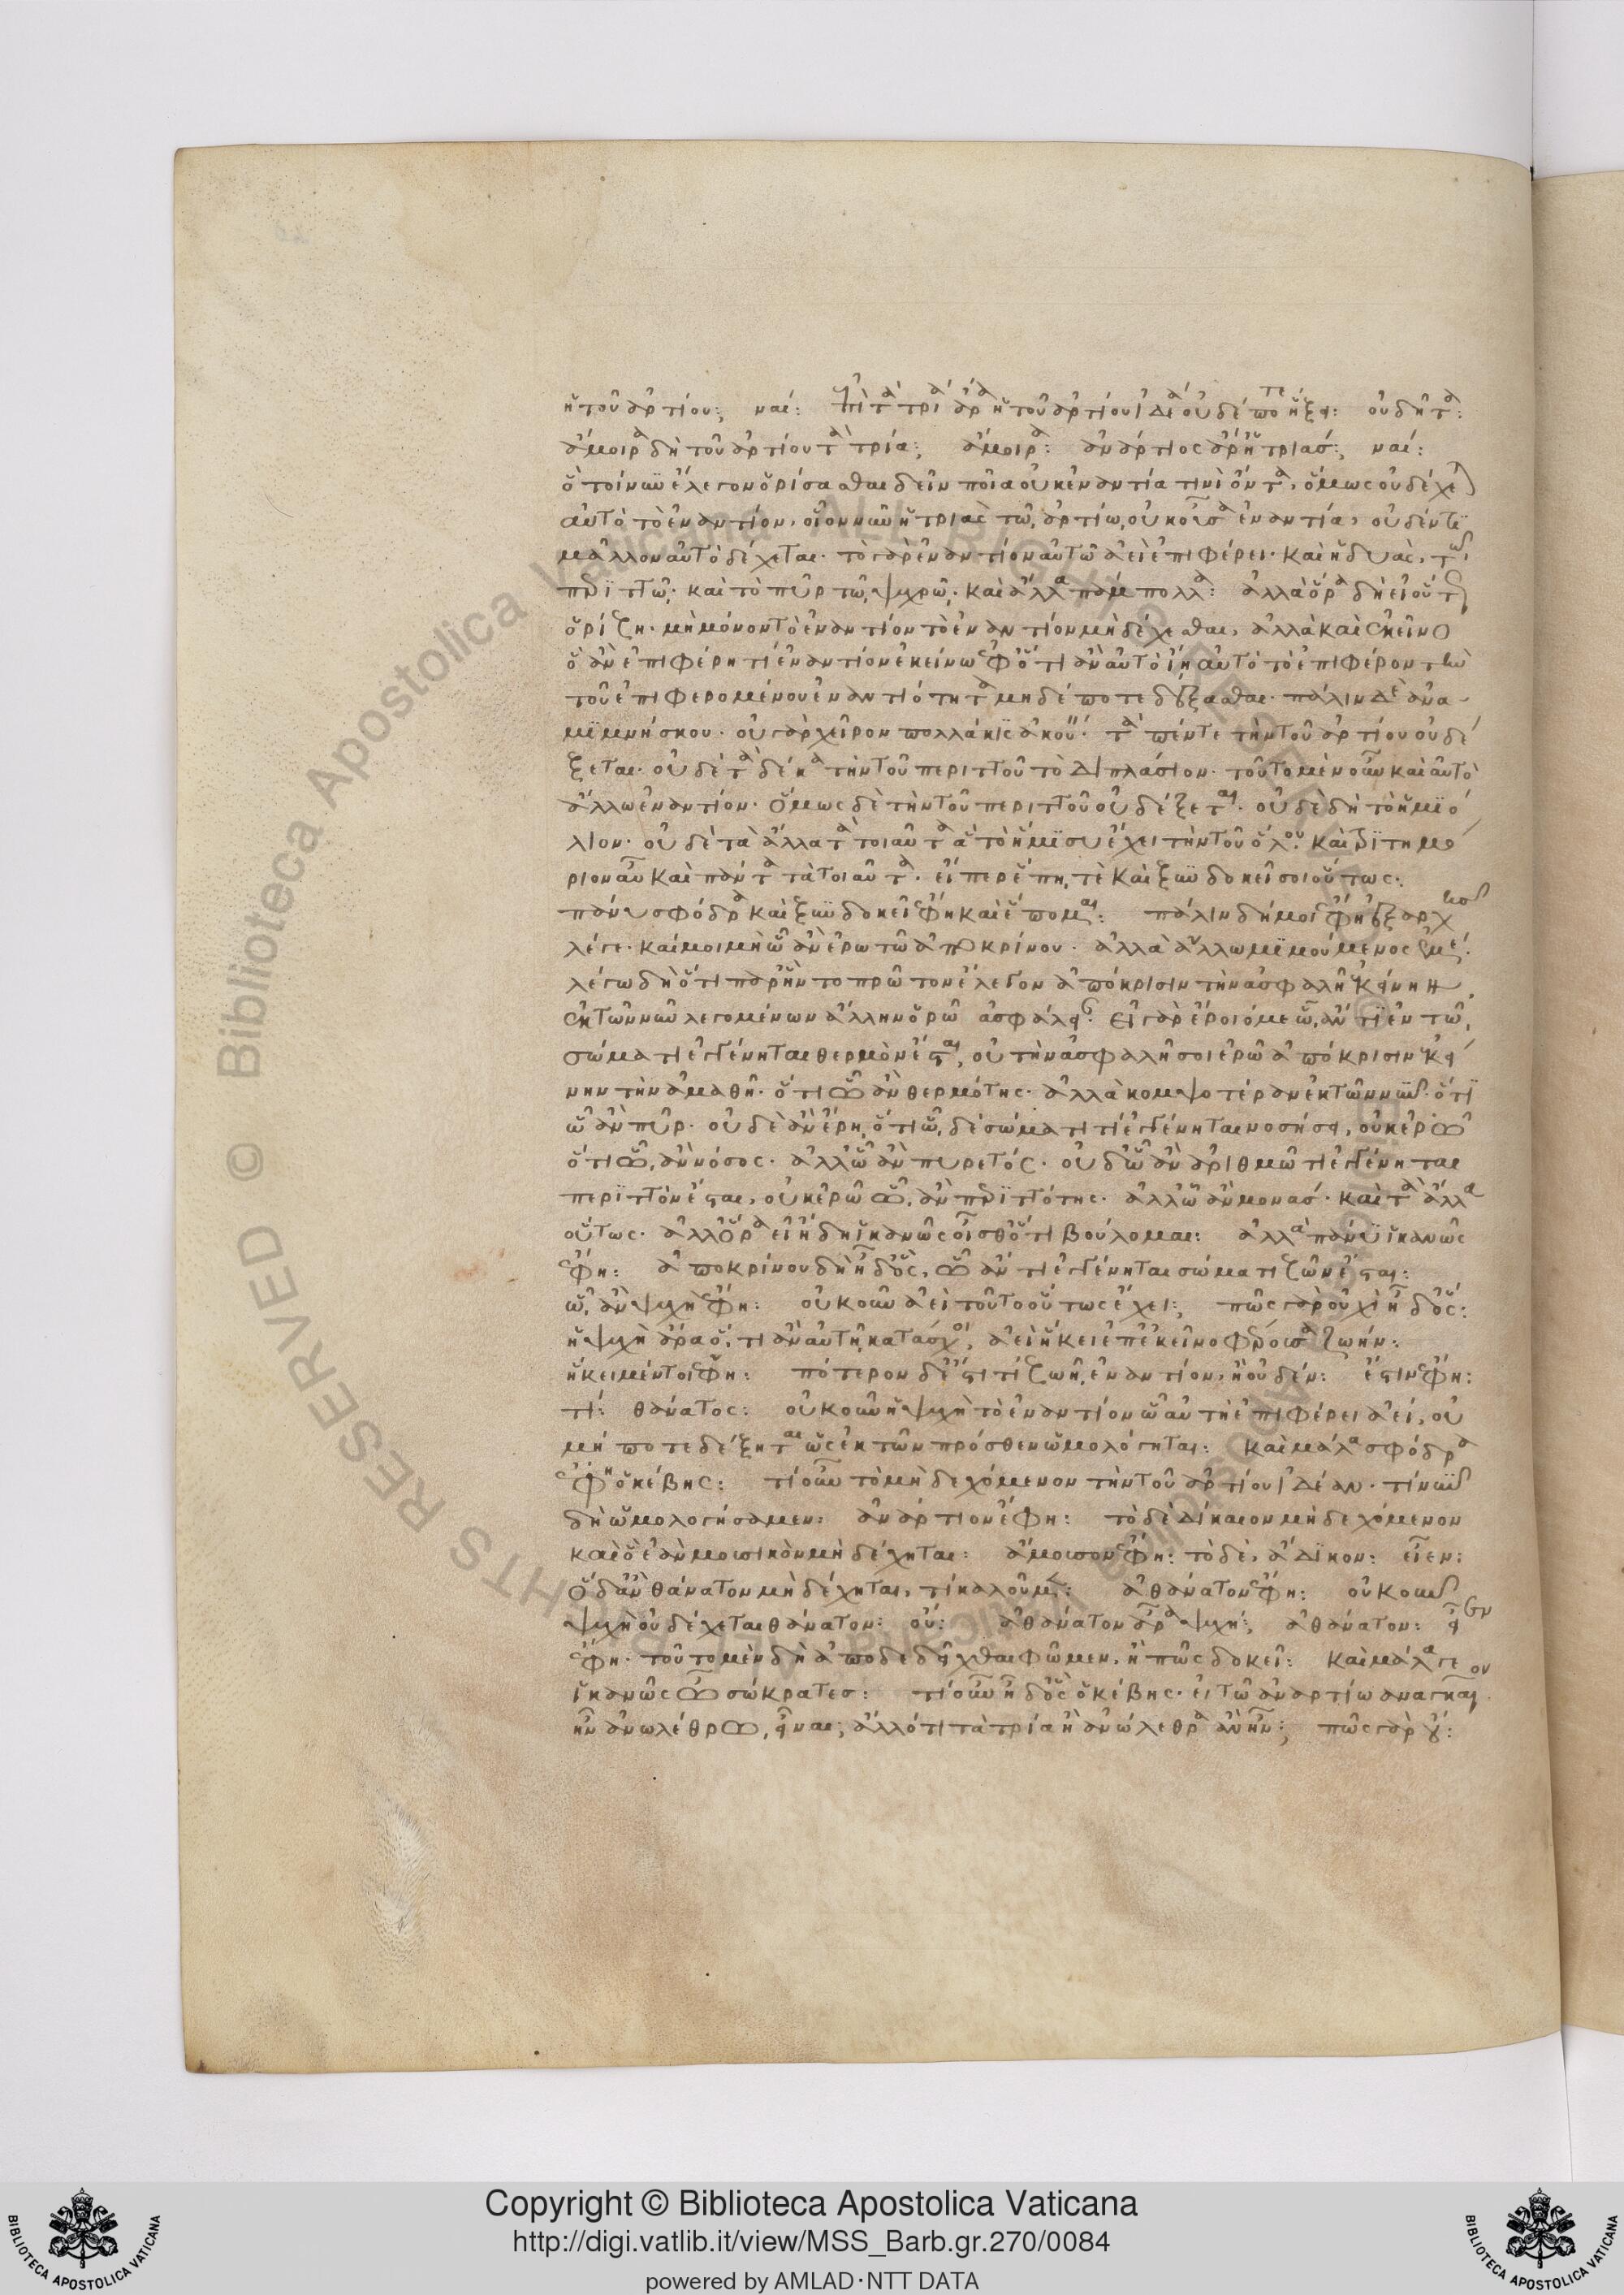 ἡ τοῦ ἀρτίου; ναί: ἐπὶ τὰ τρία ἄρα ἡ τοῦ ἀρτίου ἰδέα οὐδέποτε ἥξει: οὐ δῆτα:
ἄμοιρα δὴ τοῦ ἀρτίου τὰ τρία; ἄμοιρα: ἀνάρτιος ἄρα ἡ τριάς; ναί:
ὃ τοίνυν ἔλεγον ὁρίσασθαι δεῖν ποῖα οὐκ ἐναντία τινὶ ὄντα, ὅμως οὐ δέχεται
αὐτὸ τὸ ἐναντίον, οἷον νῦν ἡ τριὰς τῶ ἀρτίω οὐκ οὖσα ἐναντία, οὐδέν τι
μᾶλλον αὐτὸ δέχεται· τὸ γὰρ ἐναντίον αὐτῶ ἀεὶ ἐπιφέρει· καὶ ἡ δυὰς, τῶ
περιττῶ· καὶ τὸ πῦρ τῶ ψυχρῶ· καὶ ἄλλα πάμπολλα: ἀλλ' ὅρα δὴ εἰ οὕτως
ὁρίζη· μὴ μόνον τὸ ἐναντίον τὸ ἐναντίον μὴ δέχεσθαι, ἀλλὰ καὶ ἐκεῖνο
ὃ ἂν ἐπιφέρη τι ἐναντίον ἐκείνω ἐφ' ὅτι ἂν αὐτὸ ἴη αὐτὸ τὸ ἐπιφέρον τὴν
τοῦ ἐπιφερομένου ἐναντιότητα μηδέποτε δέξασθαι· πάλιν δὲ ἀνα
μιμνήσκου· οὐ γὰρ χεῖρον πολλάκις ἀκούειν· τὰ πέντε τὴν τοῦ ἀρτίου οὐ δέ
ξεται· οὐδὲ τὰ δέκα τὴν τοῦ περιττοῦ τὸ διπλάσιον· τοῦτο μὲν οὖν καὶ αὐτὸ
ἄλλω ἐναντίον· ὅμως δὲ τὴν τοῦ περιττοῦ οὐ δέξεται· οὐδὲ δὴ τὸ ἡμιό
λιον· οὐδὲ τὰ ἄλλα τὰ τοιαῦτα τὸ ἥμισυ ἔχει τὴν τοῦ ὅλου· καὶ τριτημό
ριον αὖ καὶ πάντα τὰ τοιαῦτα· εἴπερ ἕπη τε καὶ ξυνδοκεῖ σοι οὕτως:
πάνυ σφόδρα καὶ ξυνδοκεῖ ἔφη καὶ ἕπομαι: πάλιν δή μοι ἔφη ἐξ ἀρχῆς
λέγε· καί μοι μὴ ὧ ἂν ἐρωτῶ ἀποκρίνου· ἀλλὰ ἄλλω μιμούμενος ἐμέ·
λέγω δὴ ὅτι παρ' ἣν τὸ πρῶτον ἔλεγον ἀπόκρισιν τὴν ἀσφαλῆ ἐκείνην
ἐκ τῶν νῦν λεγομένων ἄλλην ὁρῶ ἀσφάλειαν· εἰ γὰρ ἔροιό με ὧ ἂν τι ἐν τῶ
σώματι ἐγγένηται θερμὸν ἔσται, οὐ τὴν ἀσφαλῆ σοι ἐρῶ ἀπόκρισιν ἐκεί
νην τὴν ἀμαθῆ· ὅτι ὧ ἂν θερμότης· ἀλλὰ κομψοτέραν ἐκ τῶν νῦν· ὅτι
ὧ ἂν πῦρ· οὐδὲ ἂν ἔρη, ὅτι ὧ δὲ σώματι τί ἐγγένηται νοσήσει, οὐκ ἐρῶ
ὅτι ὧ ἂν νόσος· ἀλλ' ὧ ἂν πυρετός· οὐδ' ὧ ἂν ἀριθμῶ τι ἐγγένηται
περιττὸν ἔσται, οὐκ ἐρῶ ὧ ἂν περιττότης· ἀλλ' ὧ ἂν μονάς· καὶ τἆλλα
οὕτως· ἀλλ' ὅρα εἰ ἤδη ἱκανῶς οἶσθ' ὅτι βούλομαι: ἀλλὰ πάνυ ἱκανῶς
ἔφη: ἀποκρίνου δὴ ἦ δ' ὃς, ὧ ἂν τι ἐγγένηται σώματι ζῶν ἔσται:
ὧ ἂν ψυχὴ ἔφη: οὐκοῦν ἀεὶ τοῦτο οὕτως ἔχει; πῶς γὰρ οὐχὶ ἦ δ' ὅς:
ἡ ψυχὴ ἄρα ὅ,τι ἂν αὐτὴ κατάσχη, ἀεὶ ἥκει ἐπ' ἐκεῖνο φέρουσα ζωήν:
ἥκει μέντοι ἔφη: πότερον δ' ἔστι τι ζωῆ ἐναντίον, ἢ οὐδέν: ἔστιν ἔφη:
τί: θάνατος: οὐκοῦν ἡ ψυχὴ τὸ ἐναντίον ὧ αὐτὴ ἐπιφέρει ἀεί, οὐ
μή ποτε δέξηται ὡς ἐκ τῶν πρόσθεν ὡμολόγηται: καὶ μάλα σφόδρα
ἔφη ὁ κέβης: τί οὖν τὸ μὴ δεχόμενον τὴν τοῦ ἀρτίου ἰδέαν· τί νῦν
δὴ ὡμολογήσαμεν: ἀνάρτιον ἔφη: τὸ δὲ δίκαιον μὴ δεχόμενον
καὶ ὃ ἐὰν μουσικὸν μὴ δέχηται: ἄμουσον ἔφη: τὸ δὲ, ἄδικον: εἶεν:
ὃ δ' ἂν θάνατον μὴ δέχηται, τί καλοῦμεν: ἀθάνατον ἔφη: οὐκοῦν
ψυχὴ οὐ δέχεται θάνατον: οὔ: ἀθάνατον ἄρα ψυχή; ἀθάνατον: εἶεν
ἔφη· τοῦτο μὲν δὴ ἀποδεδεῖχθαι φῶμεν, ἢ πῶς δοκεῖ: καὶ μάλα γε
ἱκανῶς ὦ σώκρατες: τί οὖν ἦ δ' ὃς ὦ κέβης· εἰ τῶ ἀναρτίω ἀναγκαῖον
ἦν ἀνωλέθρω εἶναι, ἄλλό τι τὰ τρία ἢ ἀνώλεθρα ἂν ἦν; πῶς γὰρ οὔ:
Copyright © Biblioteca Apostolica Vaticana
http://digi.vatlib.it/view/MSS_Barb.gr.270/0084
powered by AMLAD·NTT DATA